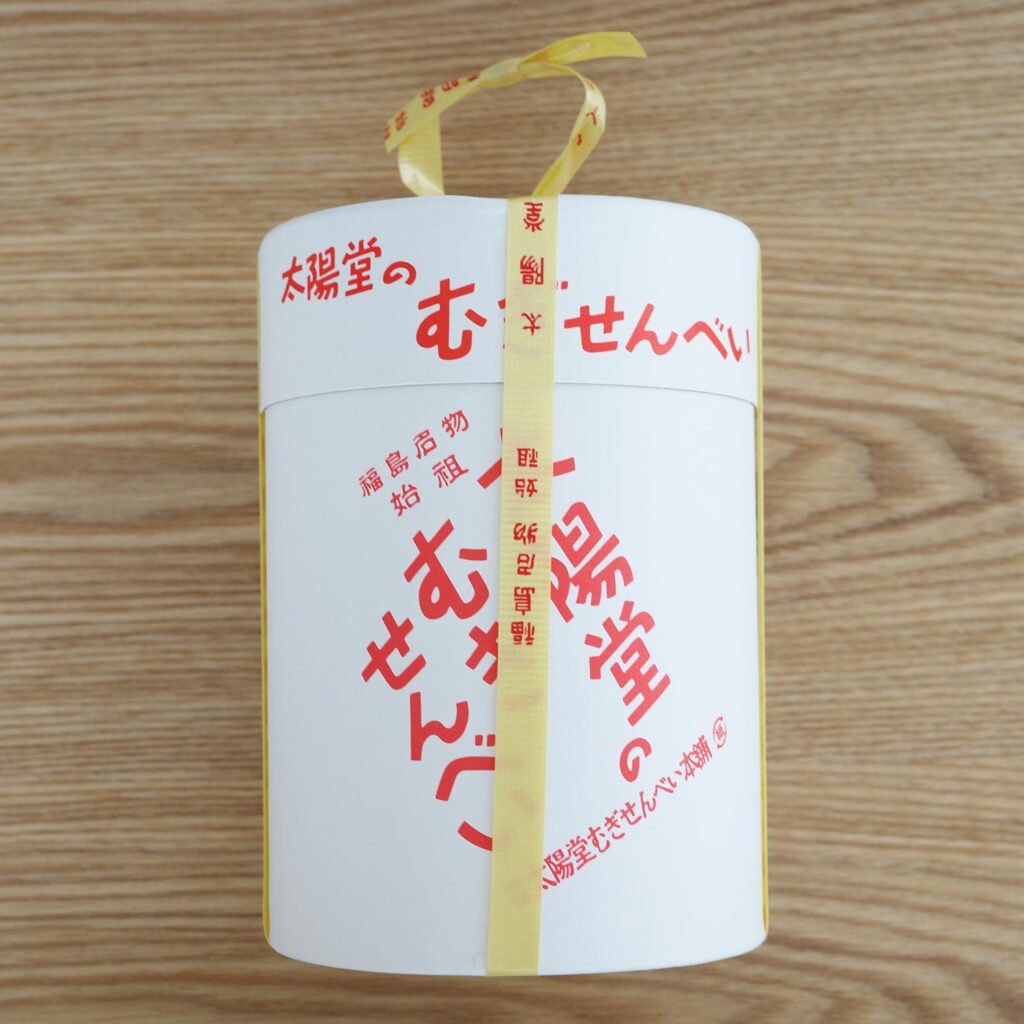 太陽堂の
むぎせんべい
福島名物
始祖
太陽堂の
むぎ
せんべい
太陽堂むぎせんべい本舗
福島名物 始祖 太陽堂